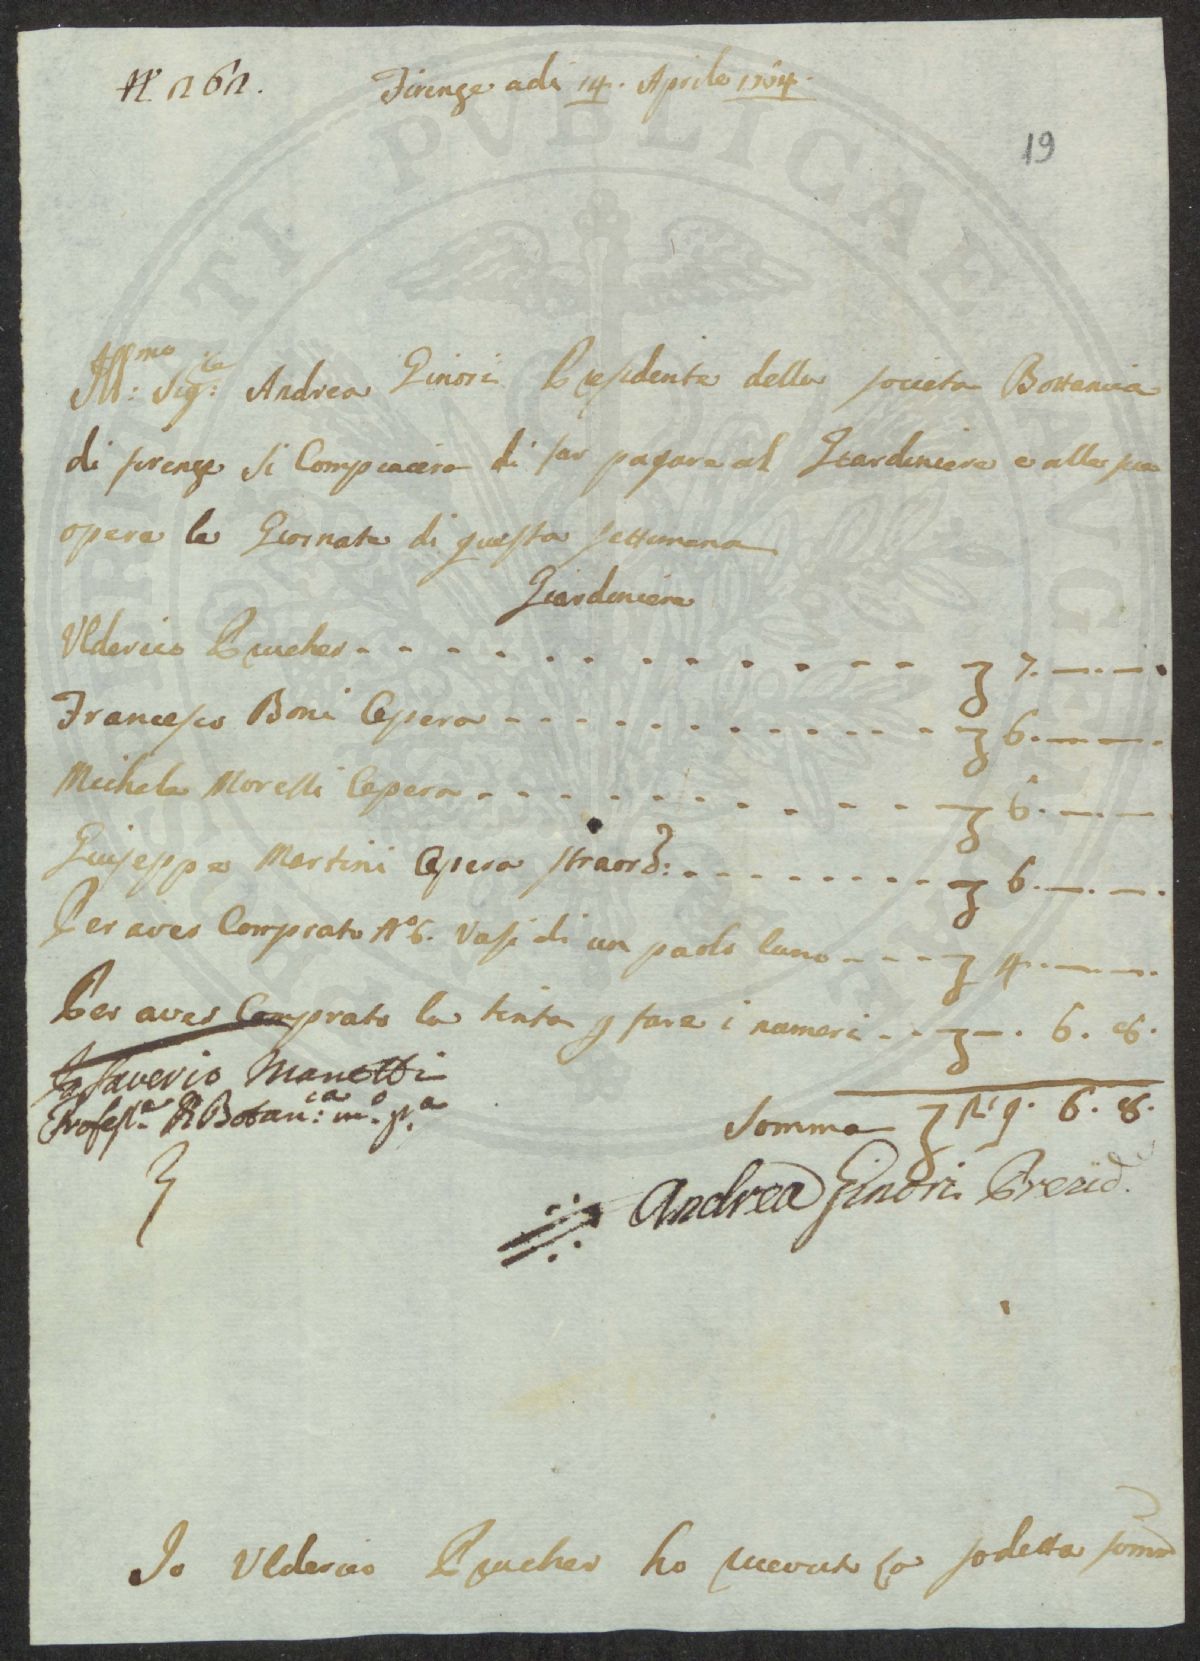 N° 262.
Firenze adi 14. Aprile 1764.
19
Ill:mo Sig:re Andrea Ginori Presidente della società Bottanica
di firenze si Compiacera di far pagare al Giardiniere e alle sue
opere le Giornate di questa settimana
Giardiniere
Ulderico Prucher - - - - - - - - - - - - £ 7. — . — .
Francesco Boni Opera - - - - - - - - - - - £ 6. — . — .
Michele Morelli Opera - - - - - - - - - - £ 6. — . — .
Giuseppe Martini Opera straord: - - - - - - - - £ 6. — . — .
Per aver Comprato N° 6. Vasi di un paolo luno - - - £ 4. — . — .
Per aver Comprato la tinta p fare i numeri - - £ — . 6. 8.
Io Saverio Manetti
Profess.e R Botan:ca m.o p.a
Somma £ 29. 6. 8.
Andrea Ginori Presid.
Io Ulderico Prucher ho ricevuto la sodetta somma
PVBLICAE